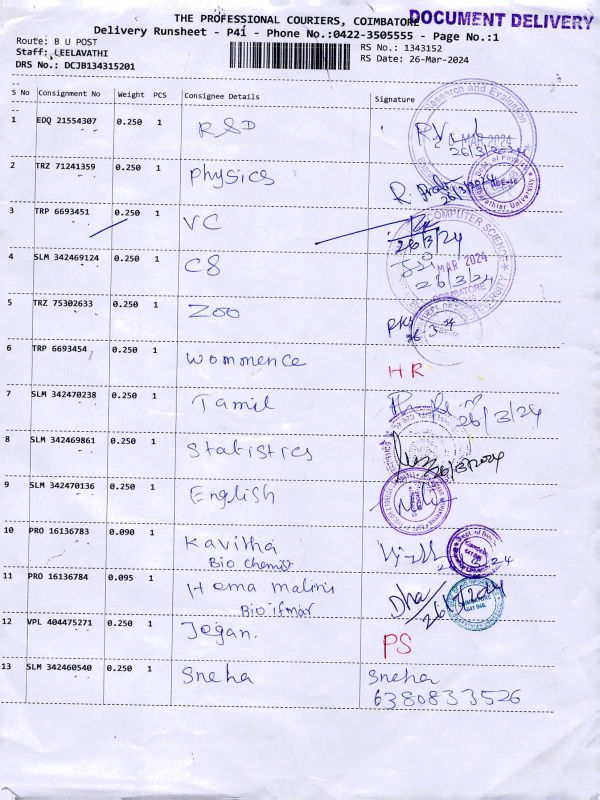 THE PROFESSIONAL COURIERS, COIMBATORE
DOCUMENT DELIVERY
Delivery Runsheet - P41 - Phone No.:0422-3505555 - Page No.:1
Route: B U POST
RS No.: 1343152
Staff: LEELAVATHI
RS Date: 26-Mar-2024
DRS No.: DCJB134315201
S No Consignment No Weight PCS Consignee Details Signature
1 EDQ 21554307 0.250 1 R&D
26/3/2024
2 TRZ 71241359 0.250 1 Physics
26/3/24
3 TRP 6693451 0.250 1 VC
26/3/24
4 SLM 342469124 0.250 1 CS
MAR 2024
26/3/24
5 TRZ 75302633 0.250 1 Zoo
6 TRP 6693454 0.250 1 Wommence HR
7 SLM 342470238 0.250 1 Tamil 26/3/24
8 SLM 342469861 0.250 1 Statistics 26/3/2024
9 SLM 342470136 0.250 1 English
10 PRO 16136783 0.090 1 Kavitha
Bio chemist
11 PRO 16136784 0.095 1 Hema malini Dha
12 VPL 404475271 0.250 1 Jegan. PS
13 SLM 342460540 0.250 1 Sneha Sneha
6380833526